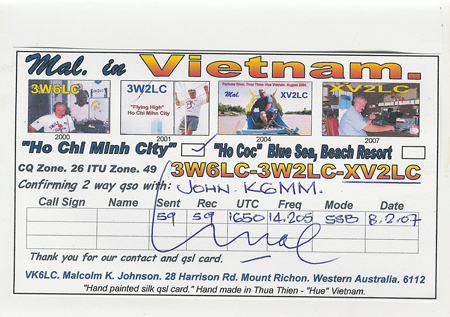 Mal. in Vietnam.
3W6LC
3W2LC
"Flying High"
Ho Chi Minh City
Perfume River, Thua Thien- Hue Vietnam. August 2004.
Mal. XV2LC
XV2LC
2000 2001 2004 2007
"Ho Chi Minh City" "Ho Coc" Blue Sea, Beach Resort
CQ Zone. 26 ITU Zone. 49 3W6LC-3W2LC-XV2LC
Confirming 2 way qso with: JOHN. K6MM.
Call Sign Name Sent Rec UTC Freq Mode Date
59 59 1650 14.205 SSB 8.2.07
Mal
Thank you for our contact and qsl card.
VK6LC. Malcolm K. Johnson. 28 Harrison Rd. Mount Richon. Western Australia. 6112
"Hand painted silk qsl card." Hand made in Thua Thien - "Hue" Vietnam.